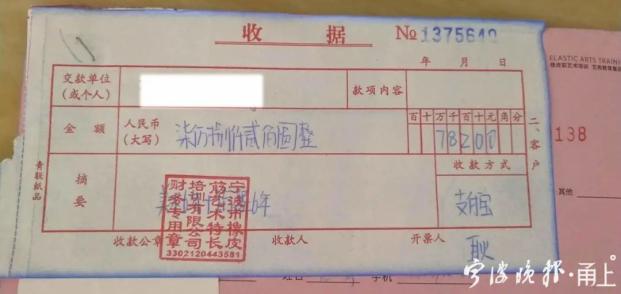 收 据 № 1375642
年 月 日
交款单位
(或个人)
款项内容
金 额
人民币
(大写)
柒万捌仟贰佰圆整
百十万千百十元角分
78200
二、客户
摘要
收款方式
支付宝
青联纸品
宁波市橡皮
筋艺术特长
培训有限公司
财务专用章
3302120443581
6年
收款公章
收款人
开票人
耿
ELASTIC ARTS TRAINI
138
其他
宁波晚报·甬上